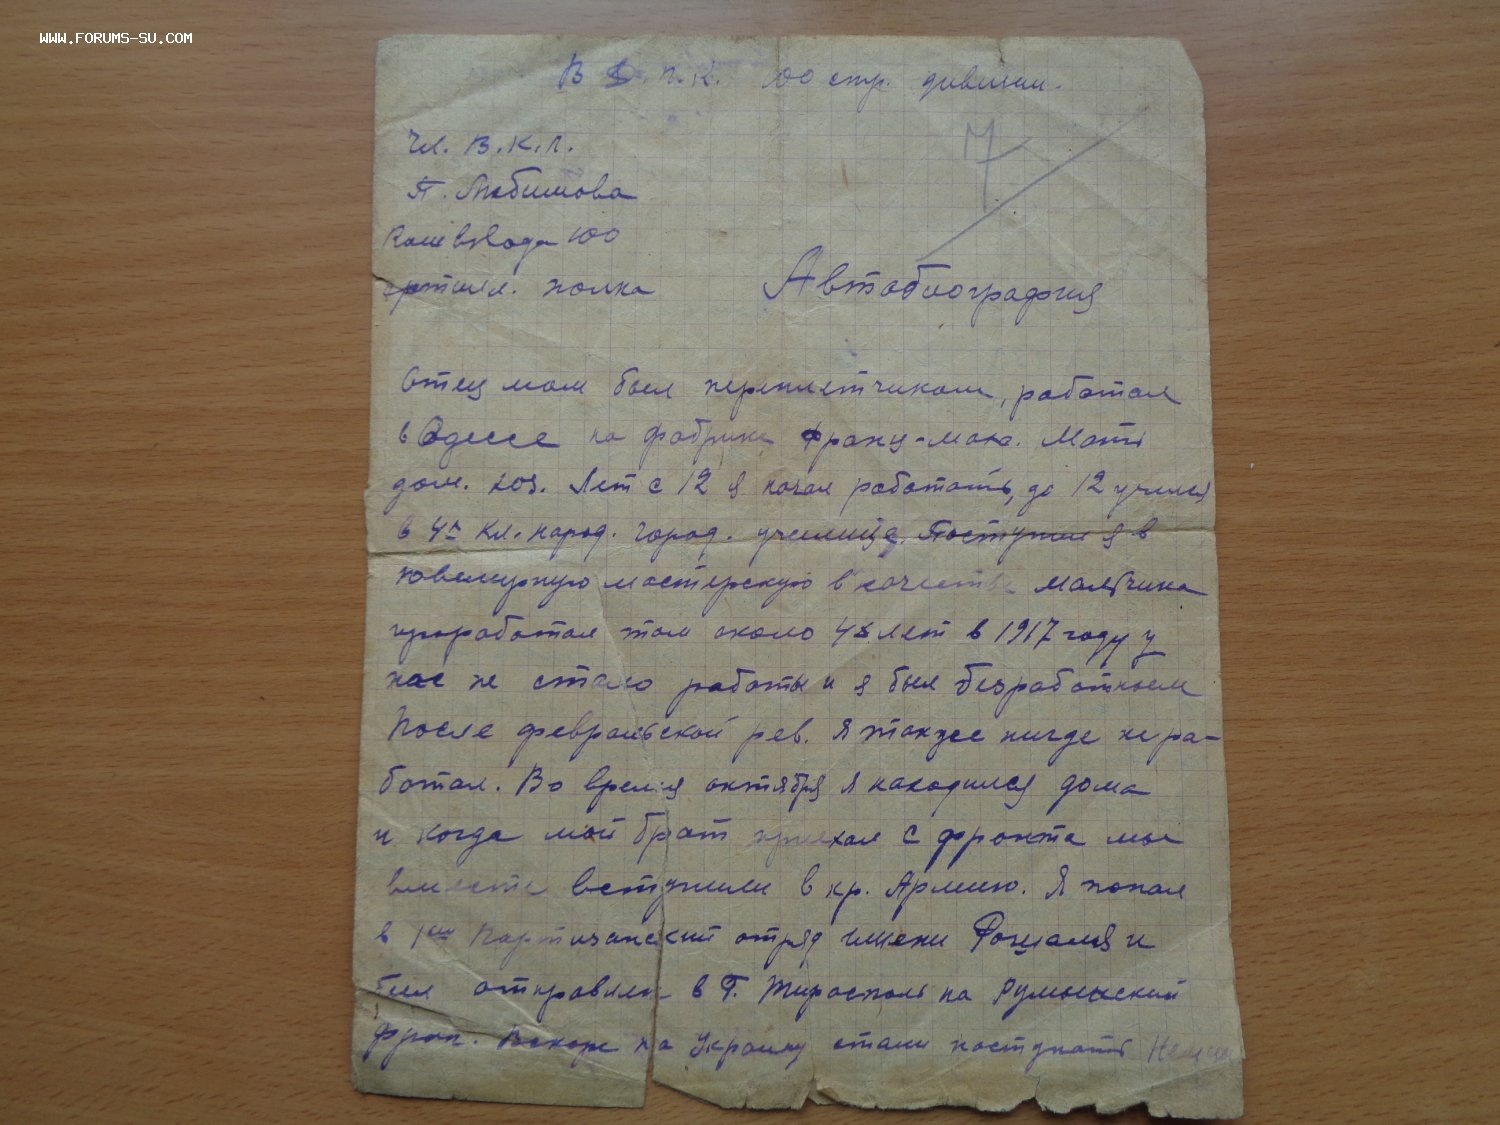 WWW.FORUMS-SU.COM
В Д.п.К. 100 стр. дивизии.
Чл. В.К.П.
П. Любимова
100
артилл. полка
Автобиография
Отец мой был переплетчиком, работал
в Одессе на фабрике Франц-Мака. Мать
дом. хоз. Лет с 12 я начал работать, до 12 учился
в 4х кл. народ. город. училище. Поступил я в
ювелирную мастерскую в качестве мальчика
проработал там около 4х лет в 1917 году у
нас не стало работы и я был безработным
После февральской рев. я также нигде не ра-
ботал. Во время октября я находился дома
и когда мой брат приехал с фронта мы
вместе вступили в кр. Армию. Я попал
в 1ый Партизанский отряд имени Рошаля и
был отправлен в г. Тирасполь на Румынский
фрон. Вскоре на Украину стали наступать немцы